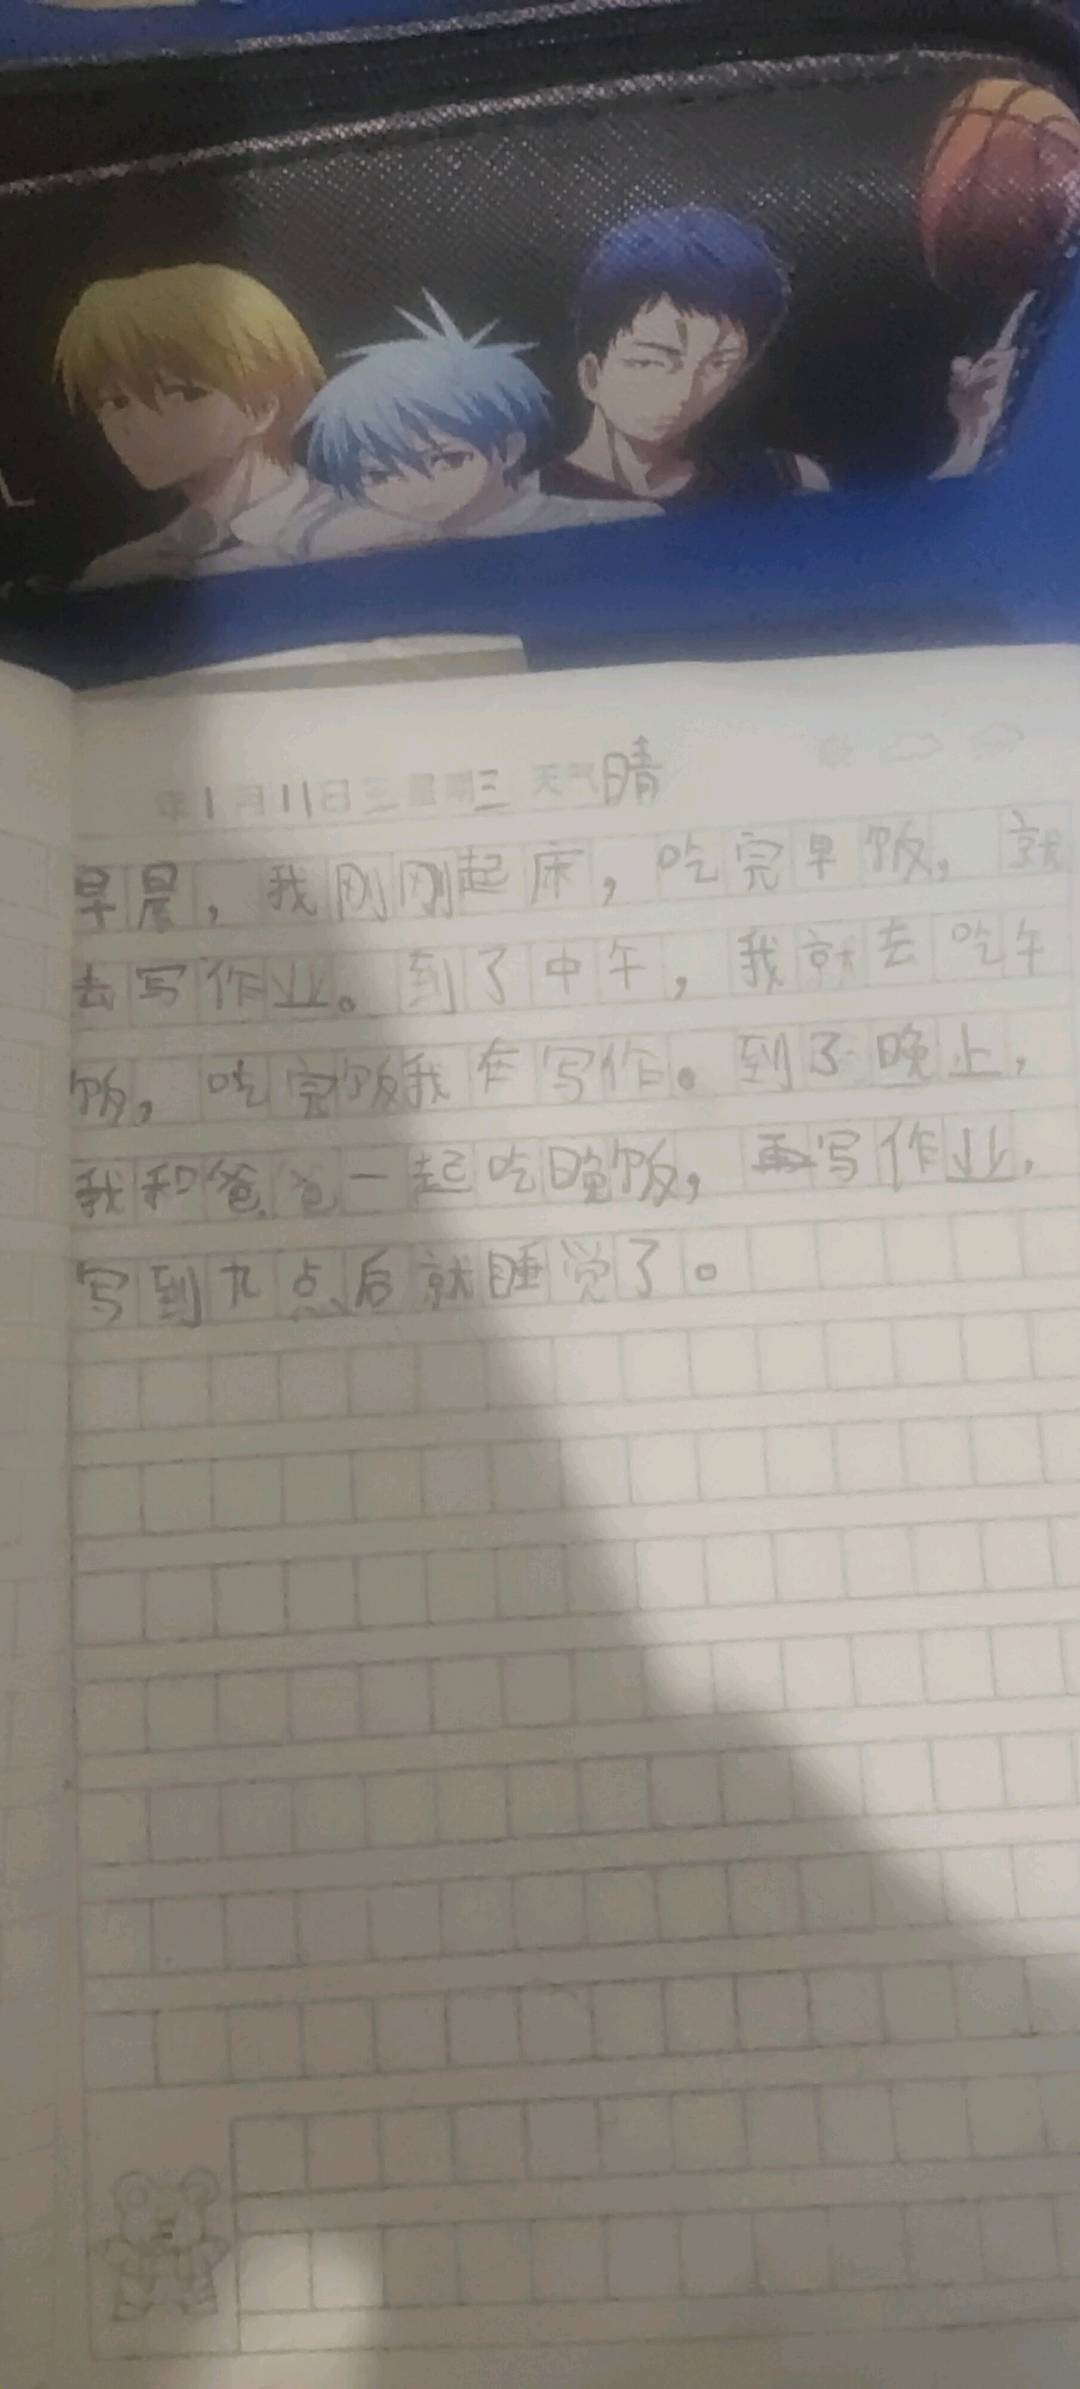 L
年1月11日三星期三 天气晴
早晨，我刚刚起床，吃完早饭，就
去写作业。到了中午，我就去吃午
饭，吃完饭我在写作。到了晚上，
我和爸爸一起吃晚饭，再写作业，
写到九点后就睡觉了。